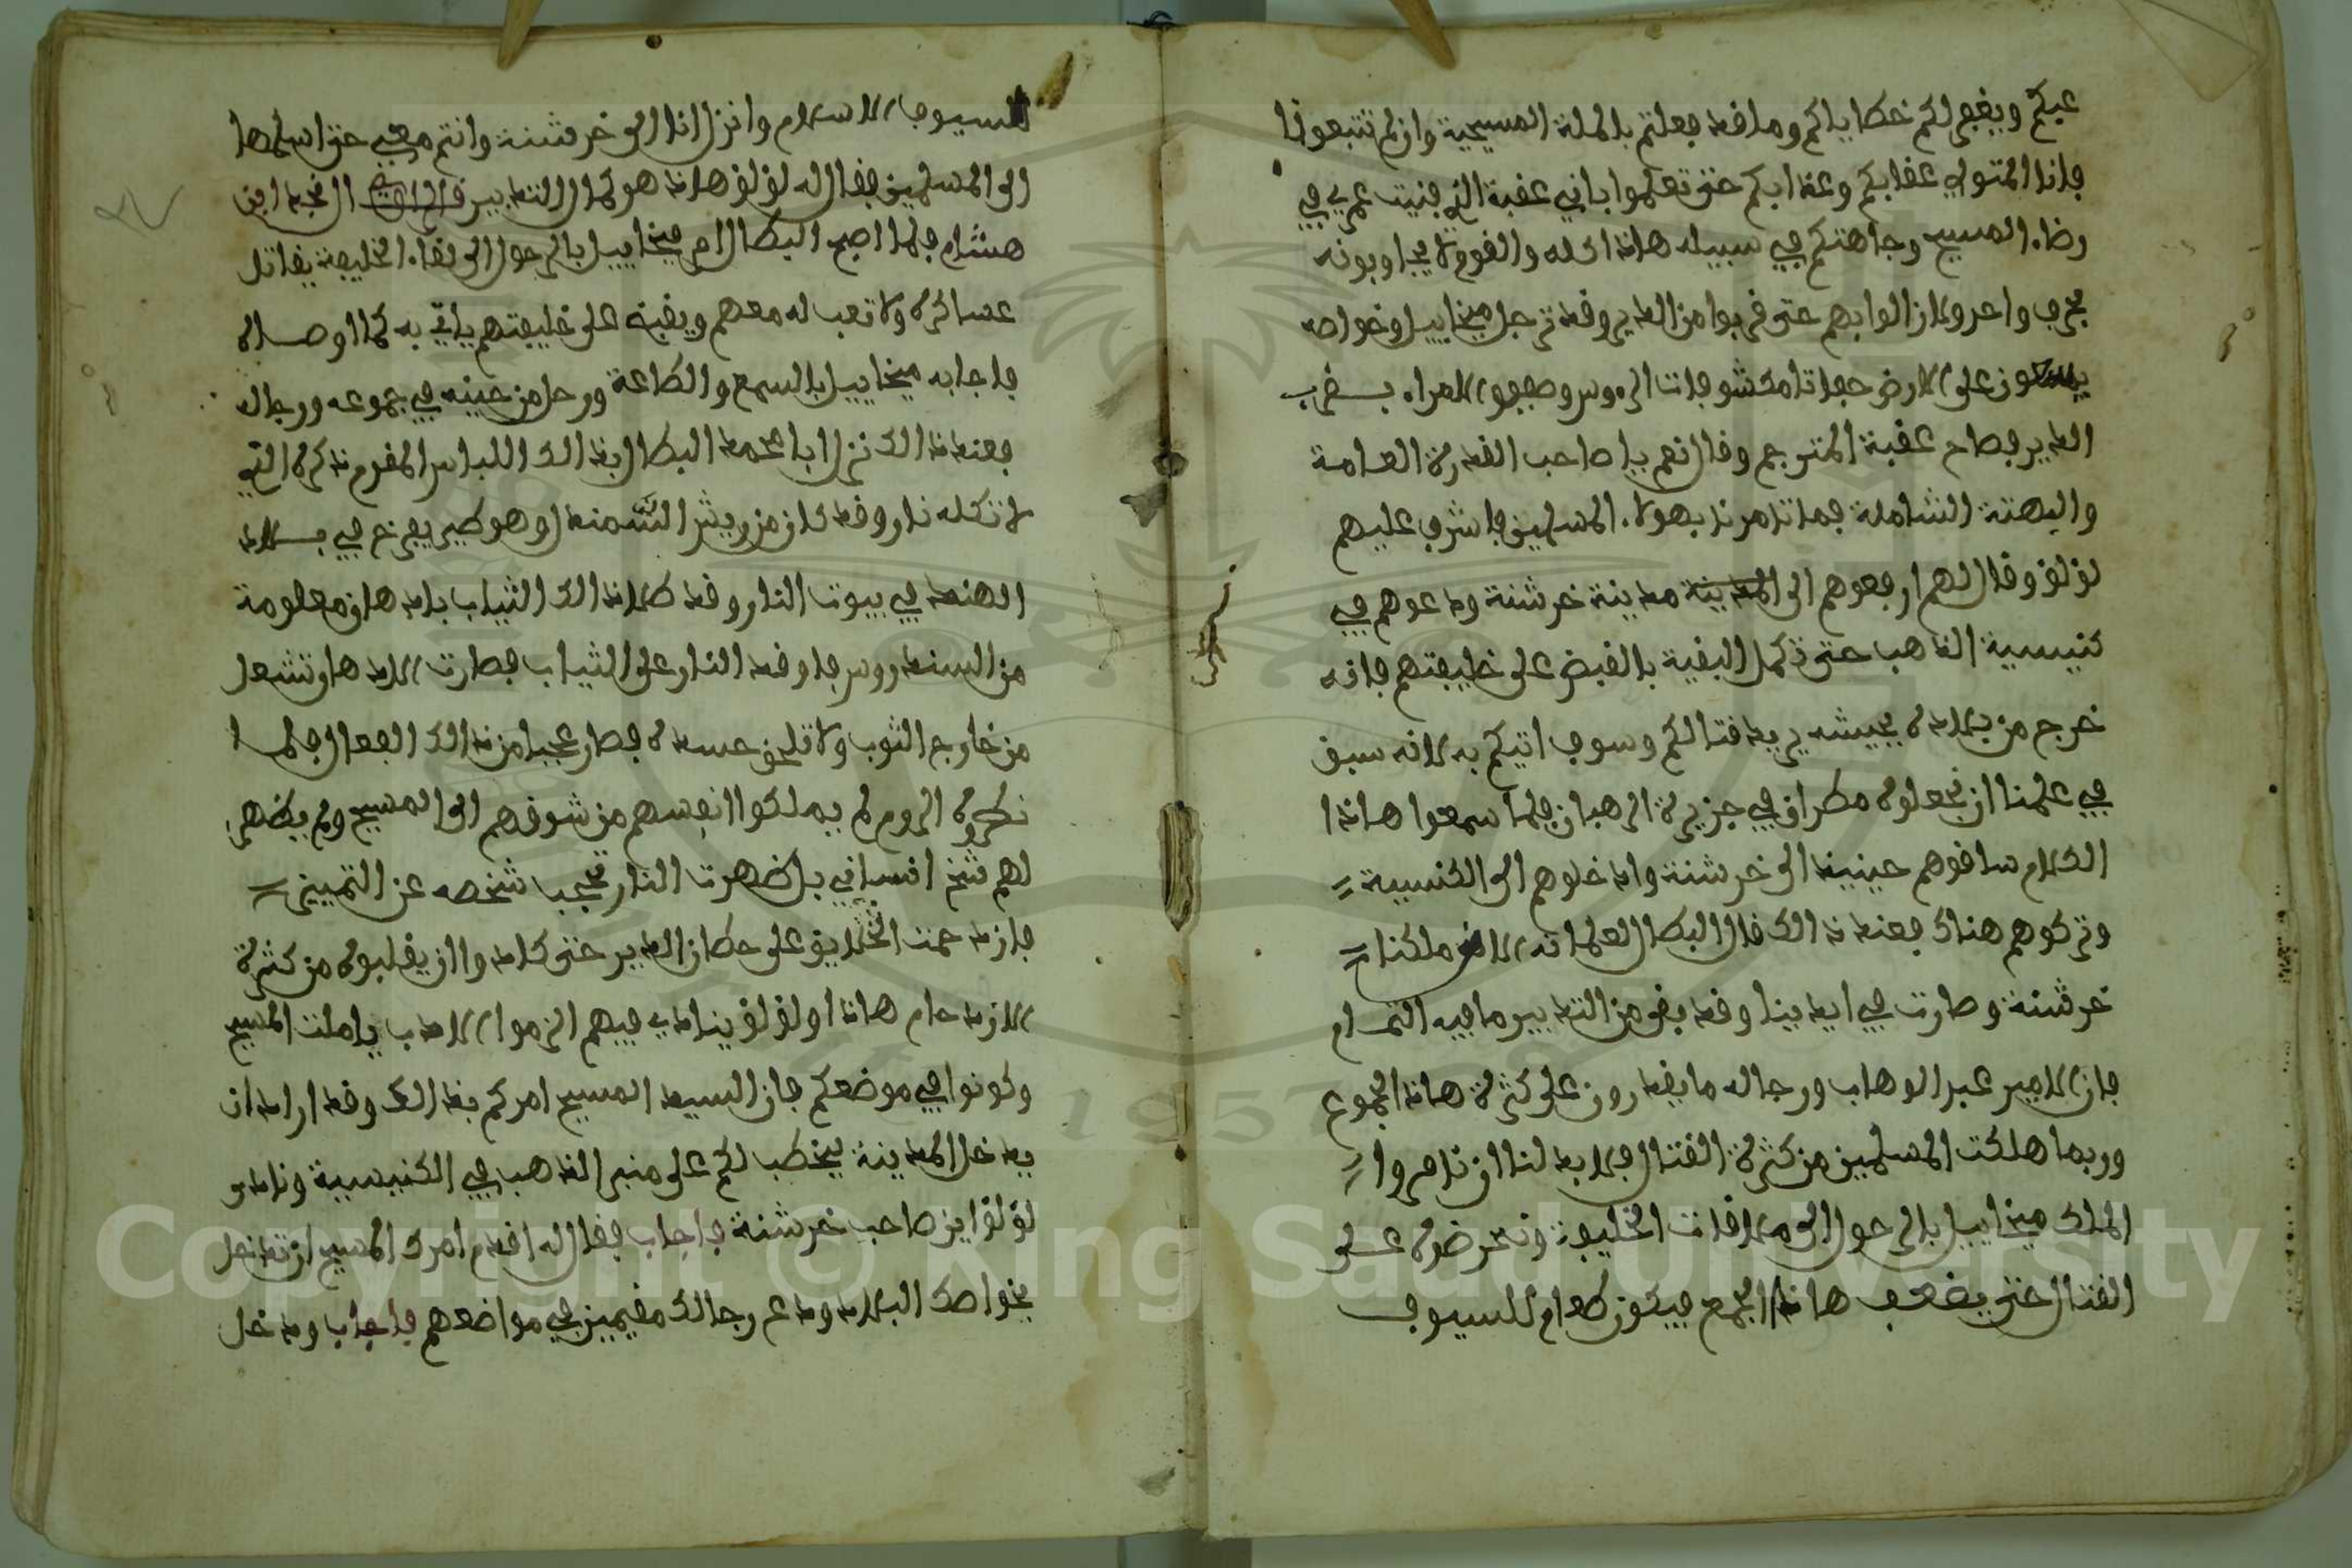 عنكم ويغفر لكم خطاياكم وما قد فعلتم بالملة المسيحية وان لم تتبعونا
فانا المتولي عقابكم وعذابكم حتى تعلموا باني عقبة الذي فنيت عمري في
رضاء المسيح وجاهدتكم في سبيله هاذا كله والقوم لا يجاوبونه
بحرف واحد ولا زالوا بهم حتى قربوا من الدير وقد ترجل ميخاييل وخواصه
على الارض حفاتا مكشوفات الروس وصففو الامراء بقرب
الدير فصاح عقبة المترجم وقال نعم يا صاحب القدرة العامة
والبهتة الشاملة فماتامرنا بهولاء المسلمين فاشرف عليهم
لولو وقال لهم ارجعوهم الى المدينة مدينة خرشنة ودعوهم في
كنيسية الذاهب حتى نكمل البقية بالقبض على خليفتهم فانه
خرج من بلاده بجيشه يريد قتالكم وسوف اتيكم به لانه سبق
في علمنا ان نجعلوه مطران في جزيرة الرهبان فلما سمعوا هاذا
الكلام ساقوهم حينيذ الى خرشنة وادخلوهم الى الكنسية
وتركوهم هناك فعند ذالك قال البطال لعلمانه الان ملكنا
خرشنة وصارت في ايدينا وقد بقى من التدبير ما فيه التمام
فان الامير عبد الوهاب ورجاله ما يقدرون على كثرة هاذه الجموع
وربما هلكت المسلمين من كثرة القتال فلا بد لنا ان نامروا
الملك ميخاييل بالرحول الى ملاقات الخليفة ونحرضوه على
القتال حتى يضعف هاذا الجمع فيكون طعام للسيوف
للسيوف الاسلام وانزل انا الى خرشنة وانتم معي حتى اسلمها
الى المسلمين فقال له لولو هاذا هو كمال التدبير قال النجد ابن
هشام فلما اصبح البطال امر ميخاييل بالرحول الى لقاء الخليفة يقاتل
عساكره ولا تعب له معهم ويقبض على خليفتهم ياتي به كما اوصاه
فاجابه ميخاييل بالسمع والطاعة ورحل من حينه في جموعه ورجاله
فعند ذالك نزل ابا محمد البطال بذالك اللباس المقدم ذكره التي
لا تاكله نار وقد كان من ريش السمندل وهو طير يفرخ في بلاد
الهند في بيوت النار وقد طلا ذالك الثياب بادهان معلومة
من السندروس فاوقد النار على الثياب فصارت الادهان تشعل
من خارج الثوب ولا تلحق جسده فصار عجبا من ذالك الفعال فلما
نظروه الروم لم يملكوا انفسهم من شوقهم الى المسيح ولم يظهر
لهم شخ انساني بل ظهرت النار تحجب شخصه عن التمييز
فازدحمت الخلايق على حطان الدير حتى كادوا ان يقلبوه من كثرة
الازدحام هاذا ولولو ينادي فيهم الزموا الادب يا ملت المسيح
وكونوا في موضعكم فان السيد المسيح امركم بذالك وقد اراد ان
يدخل المدينة يخطب لكم على منبر الذاهب في الكنيسية ونادى
لولو اين صاحب خرشنة فاجاب فقال له اقدم امرك المسيح ان تدخل
بخواصك البلاد ودع رجالك مقيمين في مواضعهم فاجاب ودخل
Copyright © King Saud University
1957